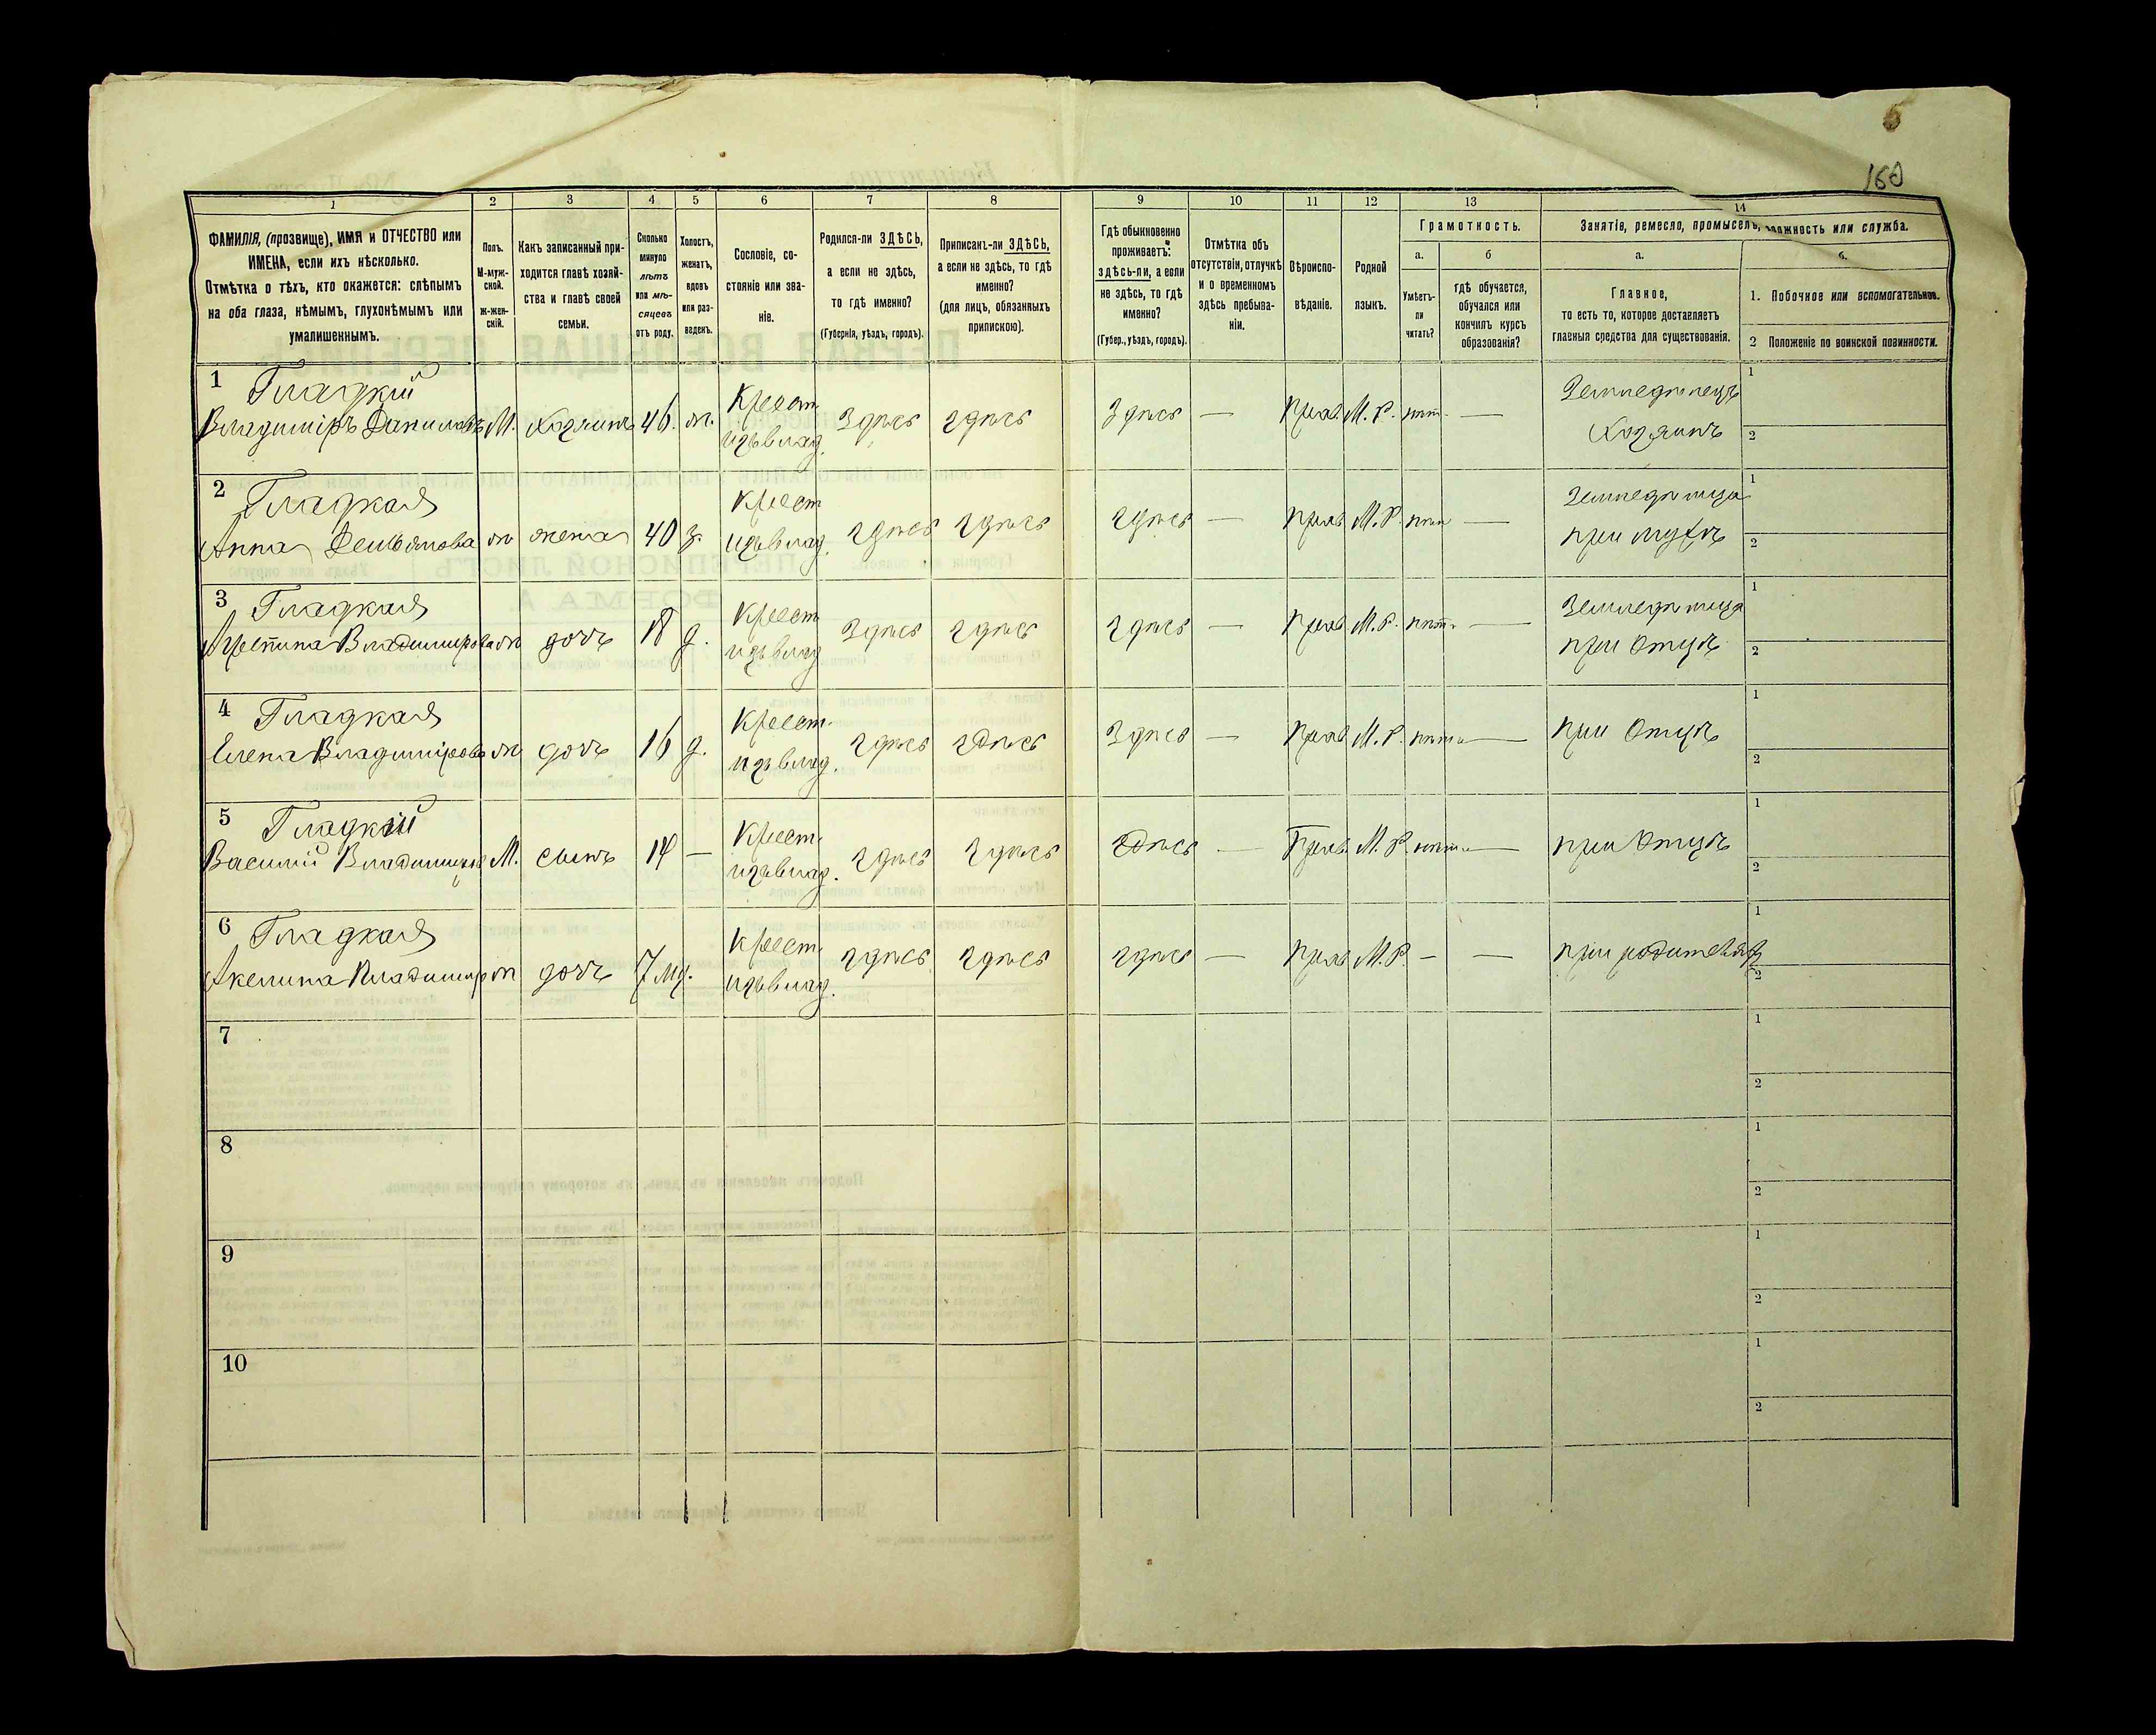 160
1 2 3 4 5 6 7 8 9 10 11 12 13 14
ФАМИЛІЯ, (прозвище), ИМЯ и ОТЧЕСТВО или
ИМЕНА, если ихъ нѣсколько.
Отмѣтка о тѣхъ, кто окажется: слѣпымъ
на оба глаза, нѣмымъ, глухонѣмымъ или
умалишеннымъ.
Полъ.
М-муж-
ской.
Ж-жен-
скій.
Какъ записанный при-
ходится главѣ хозяй-
ства и главѣ своей
семьи.
Сколько
минуло
лѣтъ
или мѣ-
сяцевъ
отъ роду.
Холостъ,
женатъ,
вдовъ
или раз-
веденъ.
Сословіе, со-
стояніе или зва-
ніе.
Родился-ли ЗДѢСЬ,
а если не здѣсь,
то гдѣ именно?
(Губернія, уѣздъ, городъ).
Приписанъ-ли ЗДѢСЬ,
а если не здѣсь, то гдѣ
именно?
(для лицъ, обязанныхъ
припискою).
Гдѣ обыкновенно
проживаетъ:
здѣсь-ли, а если
не здѣсь, то гдѣ
именно?
(Губер., уѣздъ, городъ).
Отмѣтка объ
отсутствіи, отлучкѣ
и о временномъ
здѣсь пребыва-
ніи.
Вѣроиспо-
вѣданіе.
Родной
языкъ.
Грамотность.
а.
Умѣетъ-
ли
читать?
б
гдѣ обучается,
обучался или
кончилъ курсъ
образованія?
Занятіе, ремесло, промыселъ, должность или служба.
а.
Главное,
то есть то, которое доставляетъ
главныя средства для существованія.
б.
1. Побочное или вспомогательное.
2 Положеніе по воинской повинности.
1 Гладкій Крест. Земледѣлецъ 1
Владиміръ Даниловъ М. Хозяинъ 46. ж. изъ влад. Здѣсь здѣсь Здѣсь — Прав. М.Р. нѣт. — Хозяинъ 2
2 Гладкая Крест. Земледѣлица 1
Анна Демьянова ж жена 40 з. изъ влад. здѣсь здѣсь здѣсь — Прав. М.Р. нѣт — при мужѣ 2
3 Гладкая Крест. Земледѣлица 1
Владимирова ж дочь 18 д. изъ влад. Здѣсь здѣсь здѣсь — Прав. М.Р. нѣт. — при Отцѣ 2
4 Гладкая Крест. 1
Елена Владимірова ж дочь 16 д. изъ влад. здѣсь здѣсь Здѣсь — Прав. М.Р. нѣтъ — при Отцѣ 2
5 Гладкій Крест. 1
Василій Владимиров М. сынъ 14 — изъ влад. здѣсь здѣсь здѣсь — Прав. М.Р. нѣт. — при Отцѣ 2
6 Гладкая Крест. 1
Акелина Владимир ж дочь 7 мц. изъ влад. здѣсь здѣсь здѣсь — Прав М.Р. — — при родителях 2
7 1
2
8 1
2
9 1
2
10 1
2